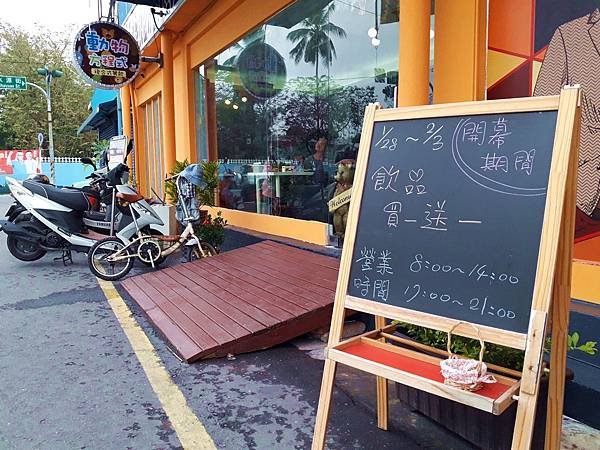 動物
方程式
複合式餐飲
1/28 ~ 2/3
開幕
期間
飲品
買一送一
營業
時間
8:00~14:00
17:00~21:00
Welcome